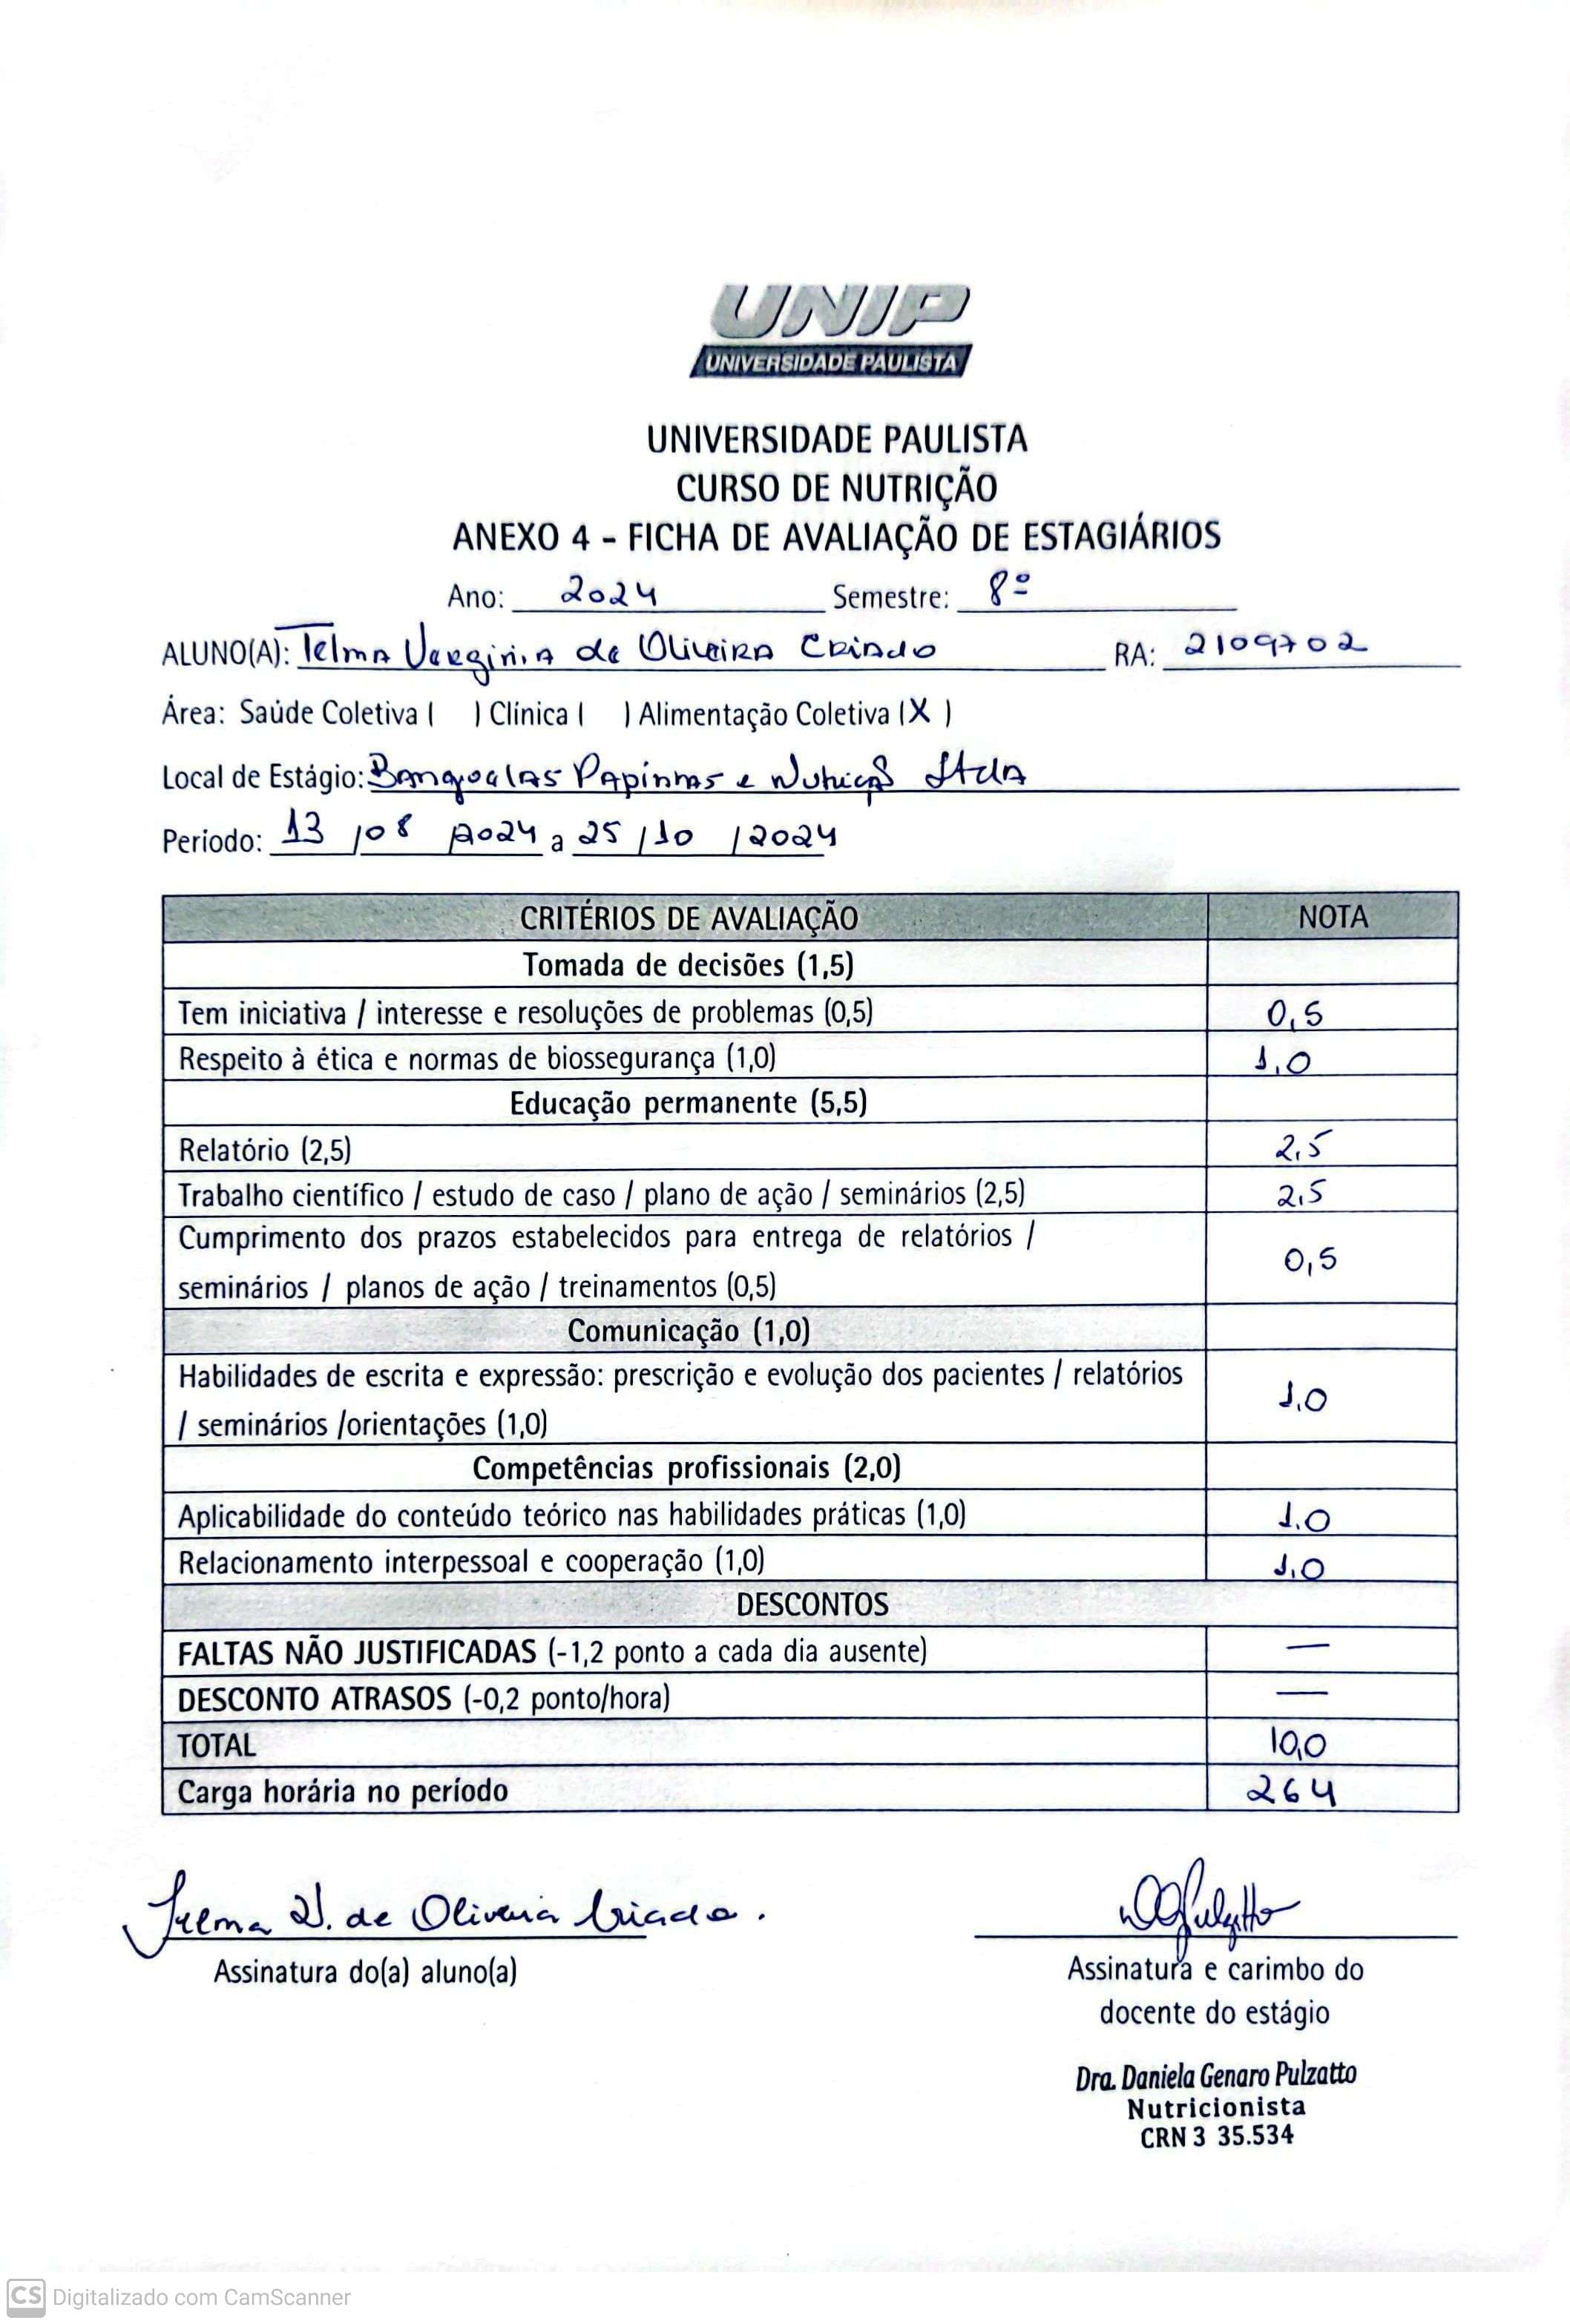 UNIP
UNIVERSIDADE PAULISTA
UNIVERSIDADE PAULISTA
CURSO DE NUTRIÇÃO
ANEXO 4 - FICHA DE AVALIAÇÃO DE ESTAGIÁRIOS
Ano: 2024 Semestre: 8º
ALUNO(A): Telma Verginia de Oliveira Criado RA: 2109702
Área: Saúde Coletiva ( ) Clínica ( ) Alimentação Coletiva (X )
Local de Estágio: Papinhas e Nutrição Ltda
Período: 13 /08 /2024 a 25 /10 /2024
CRITÉRIOS DE AVALIAÇÃO NOTA
Tomada de decisões (1,5)
Tem iniciativa / interesse e resoluções de problemas (0,5) 0,5
Respeito à ética e normas de biossegurança (1,0) 1,0
Educação permanente (5,5)
Relatório (2,5) 2,5
Trabalho científico / estudo de caso / plano de ação / seminários (2,5) 2,5
Cumprimento dos prazos estabelecidos para entrega de relatórios /
seminários / planos de ação / treinamentos (0,5) 0,5
Comunicação (1,0)
Habilidades de escrita e expressão: prescrição e evolução dos pacientes / relatórios
/ seminários /orientações (1,0) 1,0
Competências profissionais (2,0)
Aplicabilidade do conteúdo teórico nas habilidades práticas (1,0) 1,0
Relacionamento interpessoal e cooperação (1,0) 1,0
DESCONTOS
FALTAS NÃO JUSTIFICADAS (-1,2 ponto a cada dia ausente) —
DESCONTO ATRASOS (-0,2 ponto/hora) —
TOTAL 10,0
Carga horária no período 264
Telma V. de Oliveira Criado.
Assinatura do(a) aluno(a)
Assinatura e carimbo do
docente do estágio
Dra. Daniela Genaro Pulzatto
Nutricionista
CRN 3 35.534
CS Digitalizado com CamScanner